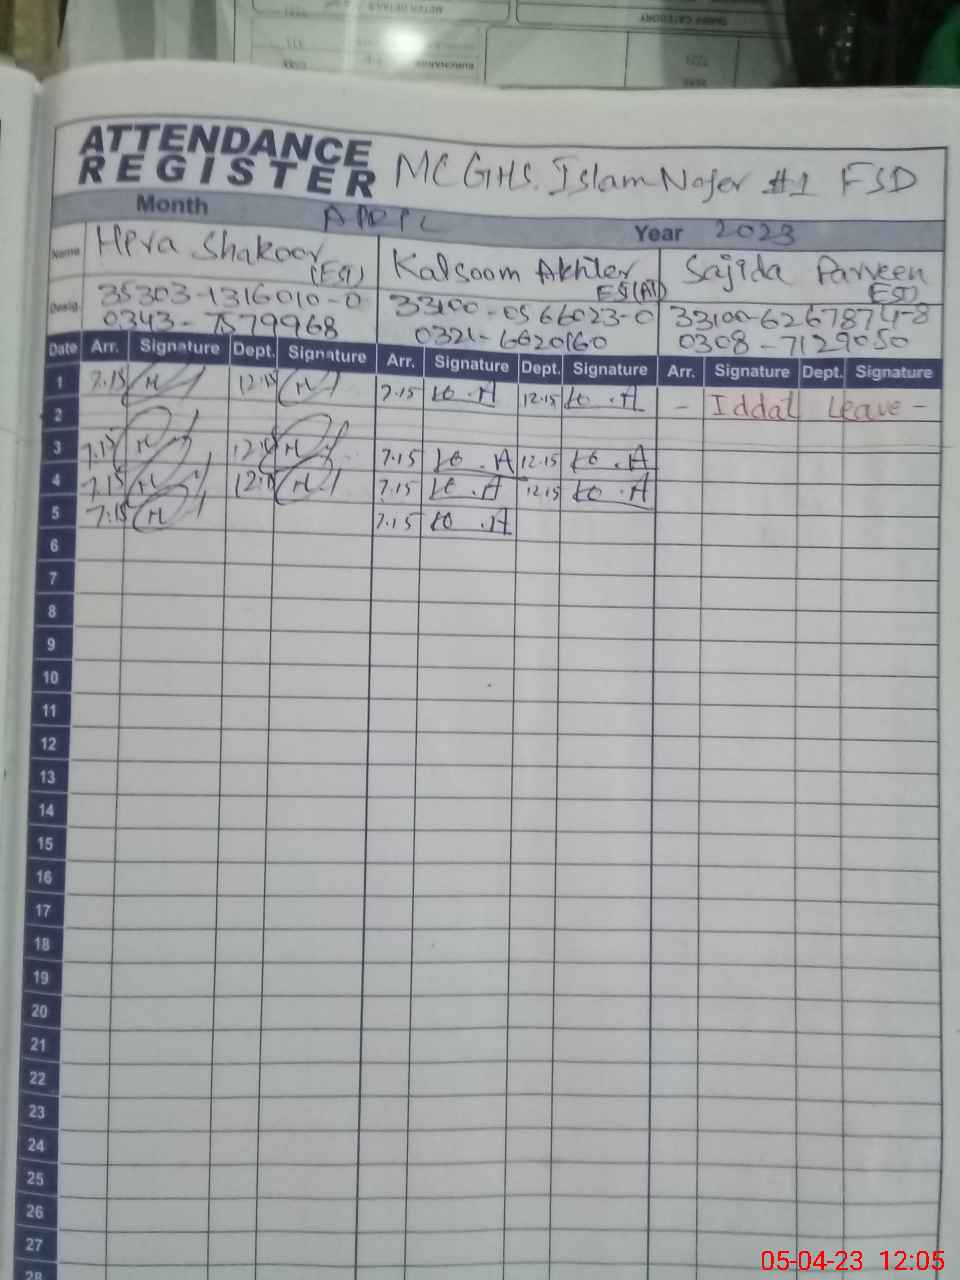 METER DETAILS
TARIFF CATEGORY
ATTENDANCE
REGISTER
MC GHS. Islam Nager #1 FSD
Month APRIL Year 2023
Name Hera Shakoor Kalsoom Akhter Sajida Parveen
(ESI) ESI(AI) ESI
Desig. 35303-1316010-0 33100-0566023-0 33100-6267874-8
0343-7579968 0321-6620160 0308-7129050
Date Arr. Signature Dept. Signature Arr. Signature Dept. Signature Arr. Signature Dept. Signature
1 7.15 H 12.15 H 7.15 K.A 12.15 K.A - Iddat Leave -
2
3 7.15 H 12.15 H 7.15 K.A 12.15 K.A
4 7.15 H 12.15 H 7.15 K.A 12.15 K.A
5 7.15 H 7.15 K.A
6
7
8
9
10
11
12
13
14
15
16
17
18
19
20
21
22
23
24
25
26
27
28
05-04-23 12:05